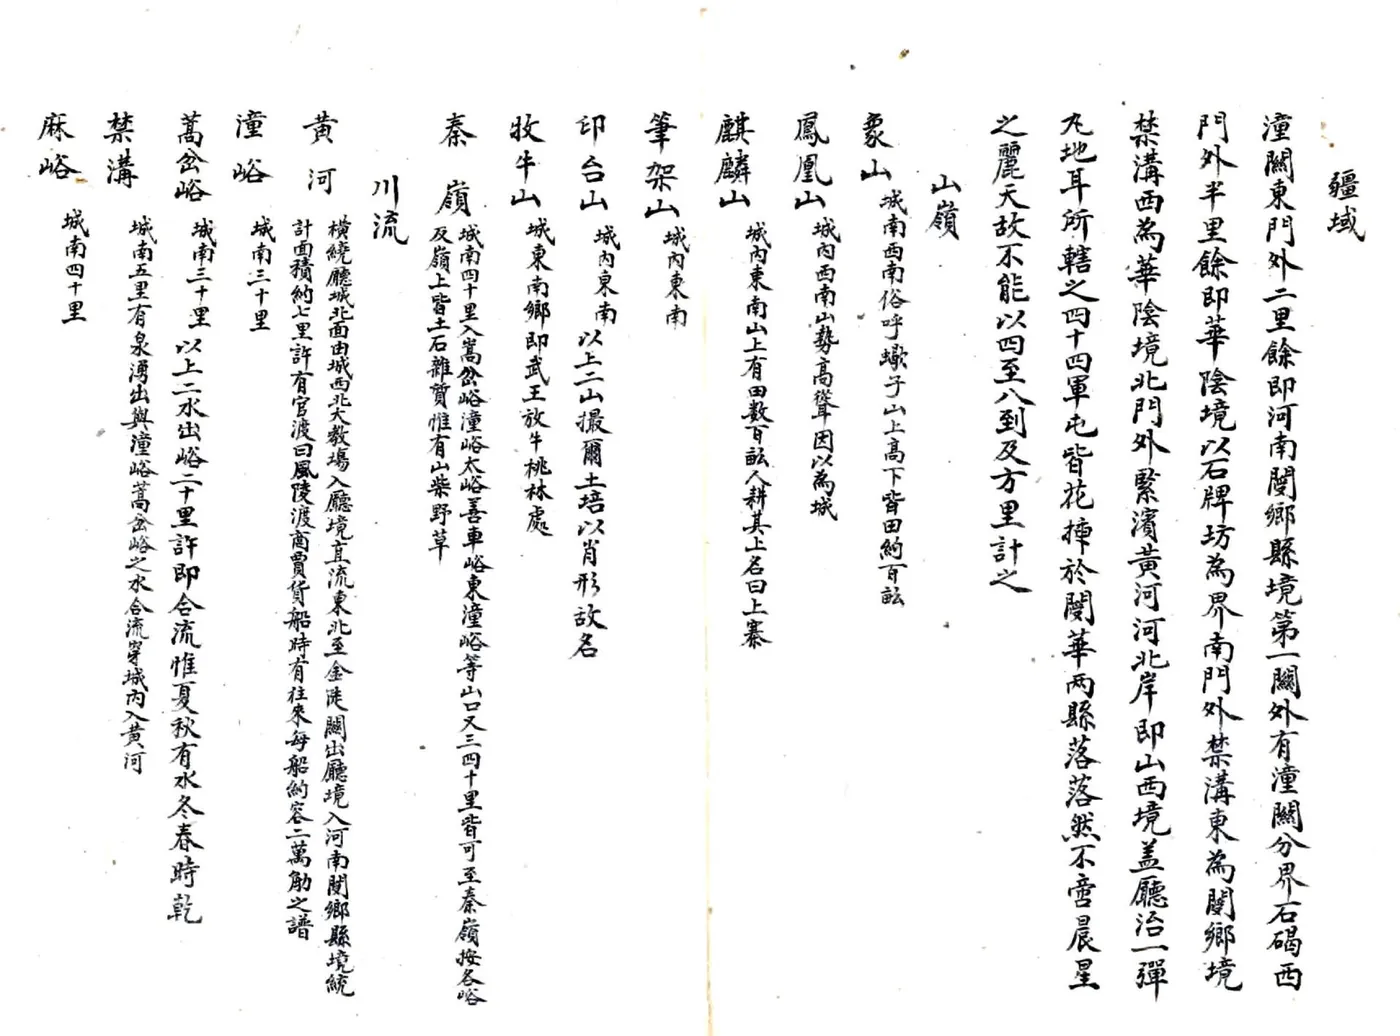 疆域
潼關東門外二里餘即河南閿鄉縣境第一關外有潼關分界石碣西
門外半里餘即華陰境以石牌坊為界南門外禁溝東為閿鄉境
禁溝西為華陰境北門外緊濱黃河河北岸即山西境蓋廳治一彈
丸地耳所轄之四十四軍屯皆花揷於閿華两縣落落然不啻晨星
之麗天故不能以四至八到及方里計之
山嶺
象山 城南西南俗呼蠍子山上高下皆田約百畝
鳳凰山 城內西南山勢高聳因以為城
麒麟山 城內東南山上有田数百畝人耕其上名曰上寨
筆架山 城內東南
印台山 城內東南 以上二山撮爾土培以肖形故名
牧牛山 城東南鄉即武王放牛桃林處
秦嶺 城南四十里入蒿岔峪潼峪太峪善車峪東潼峪等山口又三四十里皆可至秦嶺按各峪
及嶺上皆土石雜質惟有山柴野草
川流
黃河 橫繞廳城北面由城西北大教塲入廳境直流東北至金陡關出廳境入河南閿鄉縣境統
計面積約七里許有官渡曰風陵渡商賈貨船時有往來每船約容二萬觔之譜
潼峪 城南三十里
蒿岔峪 城南三十里 以上二水出峪二十里許即合流惟夏秋有水冬春時乾
禁溝 城南五里有泉湧出與潼峪蒿岔峪之水合流穿城內入黃河
麻峪 城南四十里